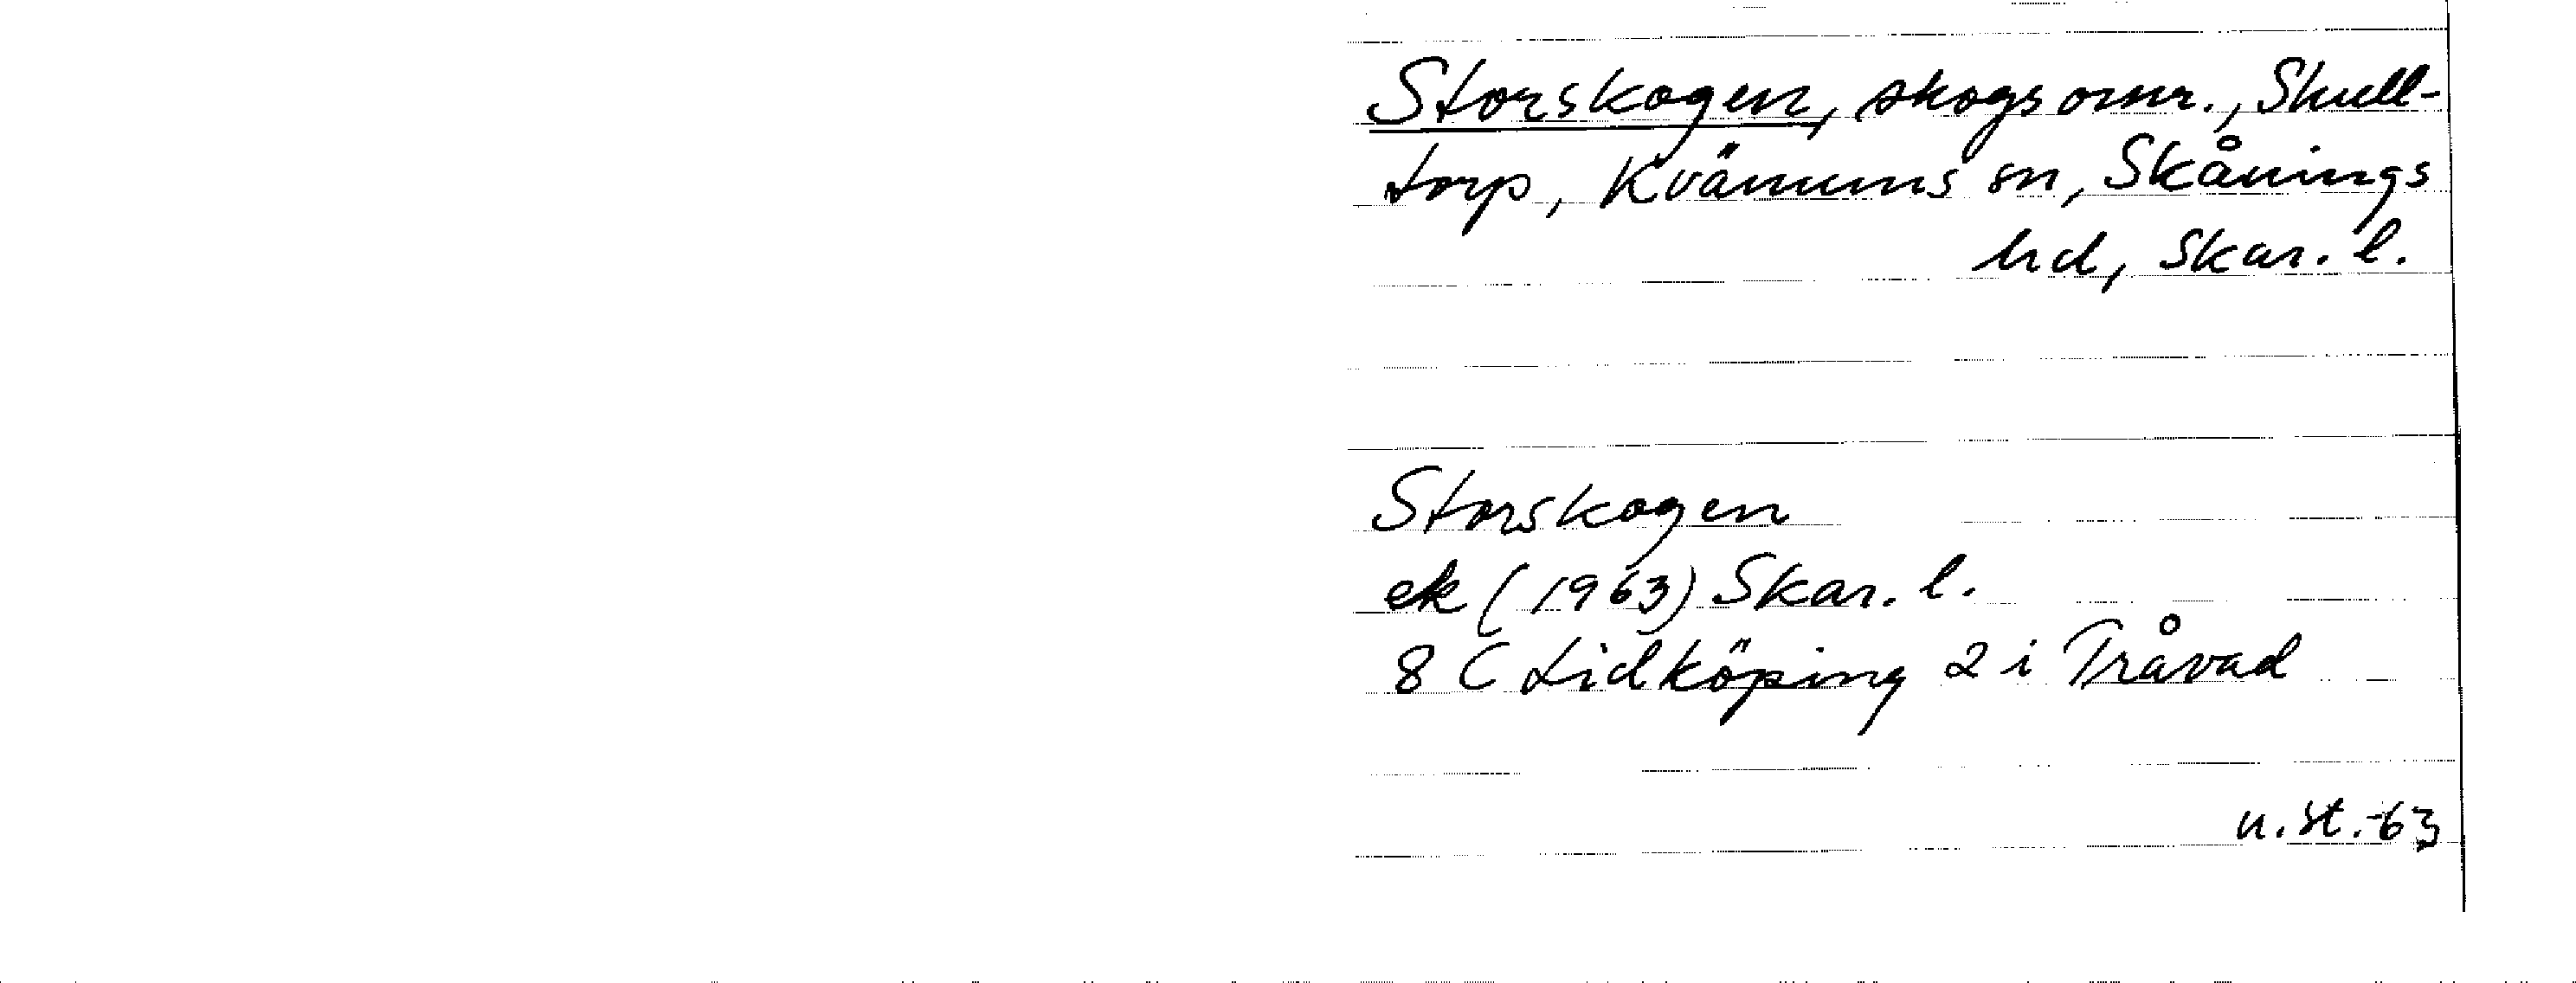 Storskogen, skogsomr., Skull-
torp, Kvänums sn, Skånings
hd, Skar. l.
Storskogen
ek (1963) Skar. l.
8 C Lidköping 2 i Tråvad
u. st. -63